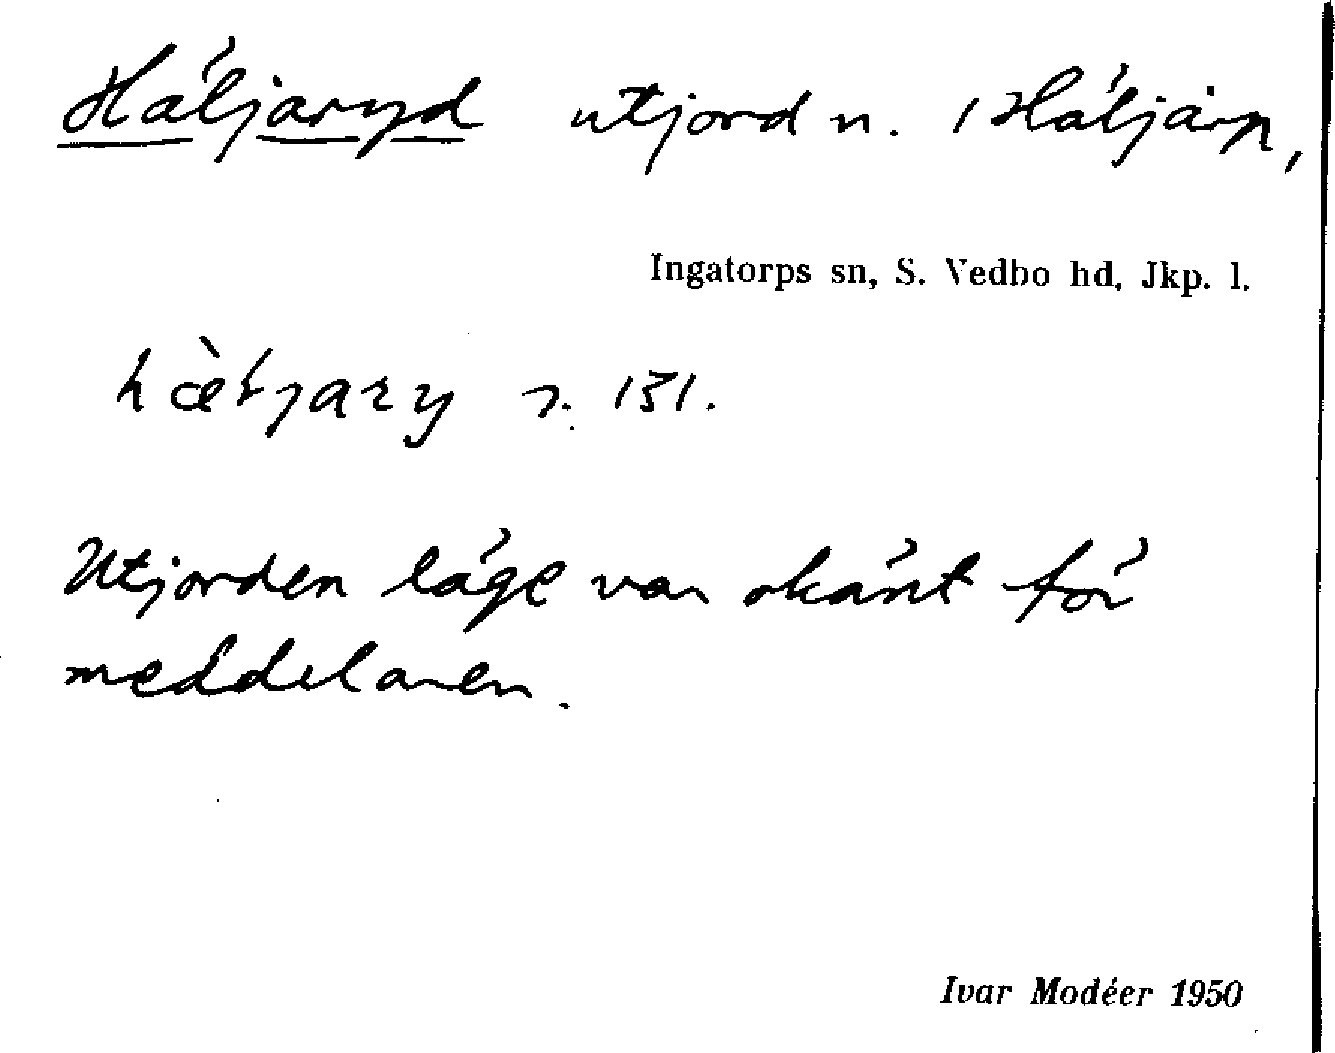 Häljaryd utjord n. 1 Häljarp,
Ingatorps sn, S. Vedbo hd, Jkp. l.
Utjorden läge var okänt för
meddelaren.
Ivar Modéer 1950